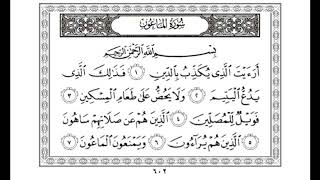 سُورَةُ الْمَاعُونِ
بِسْمِ اللَّهِ الرَّحْمَٰنِ الرَّحِيمِ
أَرَءَيْتَ الَّذِى يُكَذِّبُ بِالدِّينِ ١ فَذَٰلِكَ الَّذِى
يَدُعُّ الْيَتِيمَ ٢ وَلَا يَحُضُّ عَلَىٰ طَعَامِ الْمِسْكِينِ ٣
فَوَيْلٌ لِّلْمُصَلِّينَ ٤ الَّذِينَ هُمْ عَن صَلَاتِهِمْ سَاهُونَ
٥ الَّذِينَ هُمْ يُرَاءُونَ ٦ وَيَمْنَعُونَ الْمَاعُونَ ٧
٦٠٢